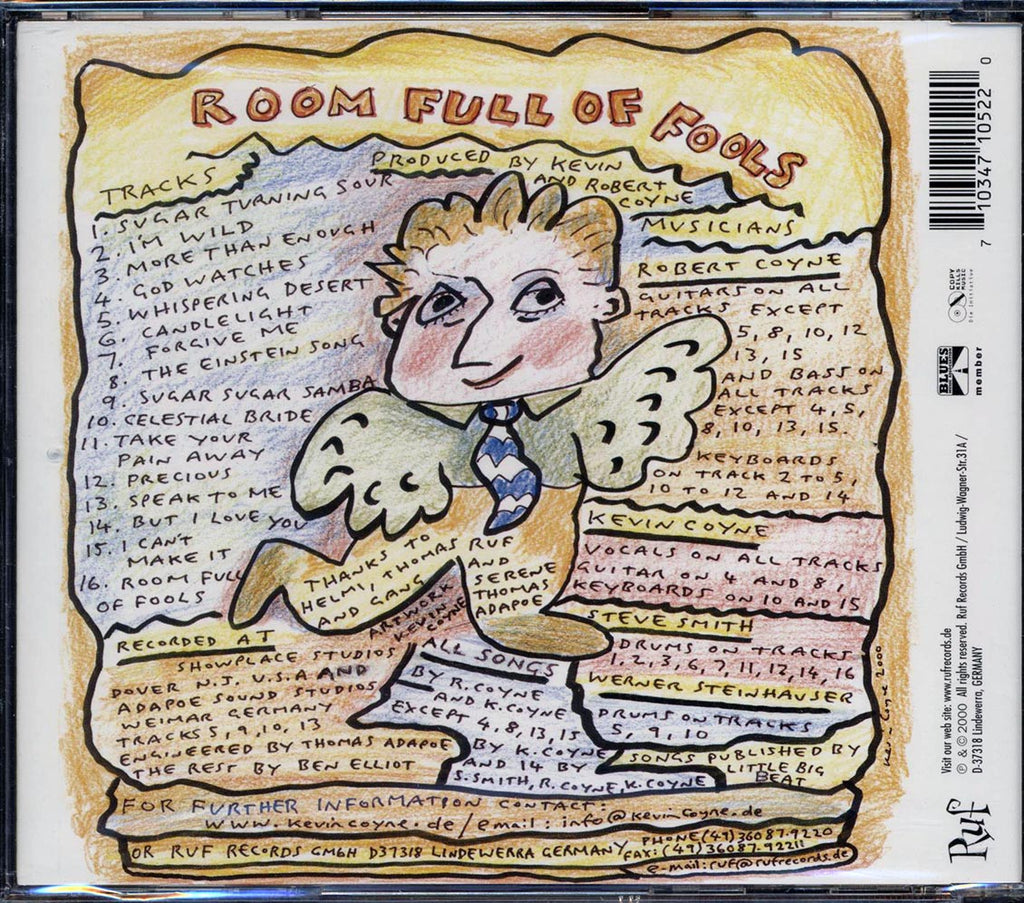 ROOM FULL OF FOOLS
TRACKS
1. SUGAR TURNING SOUR
2. I'M WILD
3. MORE THAN ENOUGH
4. GOD WATCHES
5. WHISPERING DESERT
6. CANDLELIGHT
7. FORGIVE ME
8. THE EINSTEIN SONG
9. SUGAR SUGAR SAMBA
10. CELESTIAL BRIDE
11. TAKE YOUR
PAIN AWAY
12. PRECIOUS
13. SPEAK TO ME
14. BUT I LOVE YOU
15. I CAN'T
MAKE IT
16. ROOM FULL
OF FOOLS
PRODUCED BY KEVIN
AND ROBERT
COYNE
MUSICIANS
ROBERT COYNE
GUITARS ON ALL
TRACKS EXCEPT
5, 8, 10, 12
13, 15
AND BASS ON
ALL TRACKS
EXCEPT 4, 5,
8, 10, 13, 15.
KEYBOARDS
ON TRACK 2 TO 5,
10 TO 12 AND 14
KEVIN COYNE
VOCALS ON ALL TRACKS
GUITAR ON 4 AND 8,
KEYBOARDS ON 10 AND 15
STEVE SMITH
DRUMS ON TRACKS
1, 2, 3, 6, 7, 11, 12, 14, 16
WERNER STEINHAUSER
DRUMS ON TRACKS
5, 9, 10
SONGS PUBLISHED BY
LITTLE BIG
BEAT
THANKS TO
HELMI, THOMAS RUF
AND GANG
AND
SERENE
THOMAS
ADAPOE
ARTWORK
KEVIN
COYNE
RECORDED AT
SHOWPLACE STUDIOS
DOVER N.J, U.S.A AND
ADAPOE SOUND STUDIOS
WEIMAR GERMANY
TRACKS 5, 9, 10, 13
ENGINEERED BY THOMAS ADAPOE
THE REST BY BEN ELLIOT
ALL SONGS
BY R. COYNE
AND K. COYNE
EXCEPT 4, 8, 13, 15
BY K. COYNE
AND 14 BY
S. SMITH, R. COYNE, K. COYNE
Kevin Coyne 2000
FOR FURTHER INFORMATION CONTACT:
www.kevincoyne.de/email: info@kevincoyne.de
OR RUF RECORDS GMBH D37318 LINDEWERRA GERMANY
PHONE (49) 36087-9220
FAX: (49) 36087-92211
e-mail: ruf@rufrecords.de
7 10347 10522 0
COPY
KILLS
MUSIC
Die Initiative
BLUES
member
Visit our web site: www.rufrecords.de
℗ & © 2000 All rights reserved. Ruf Records GmbH / Ludwig-Wagner-Str.31A /
D-37318 Lindewerra, GERMANY
Ruf